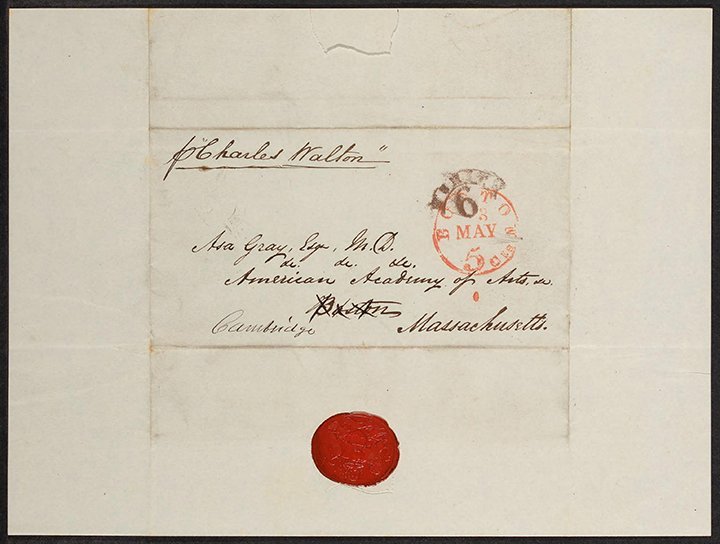 p "Charles Walton"
SHIP
6
BOSTON
3
MAY
5 Cts
Asa Gray, Esq., M.D.
&c. &c. &c.
American Academy of Arts, &c.
Boston
Cambridge Massachusetts.